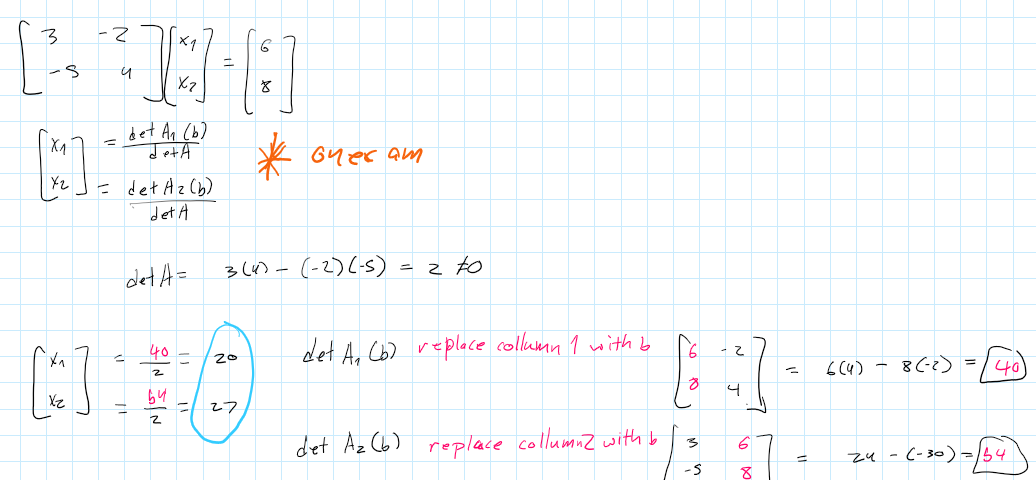 [3 -2; -5 4] [x1; x2] = [6; 8]
[x1; x2] = det A1(b) / det A
= det A2(b) / det A
* on exam
det A = 3(4) - (-2)(-5) = 2 ≠0
[x1; x2] = 40/2 = 20
= 54/2 = 27
det A1(b) replace collumn 1 with b [6 -2; 8 4] = 6(4) - 8(-2) = 40
det A2(b) replace collumn2 with b [3 6; -5 8] = 24 - (-30) = 54